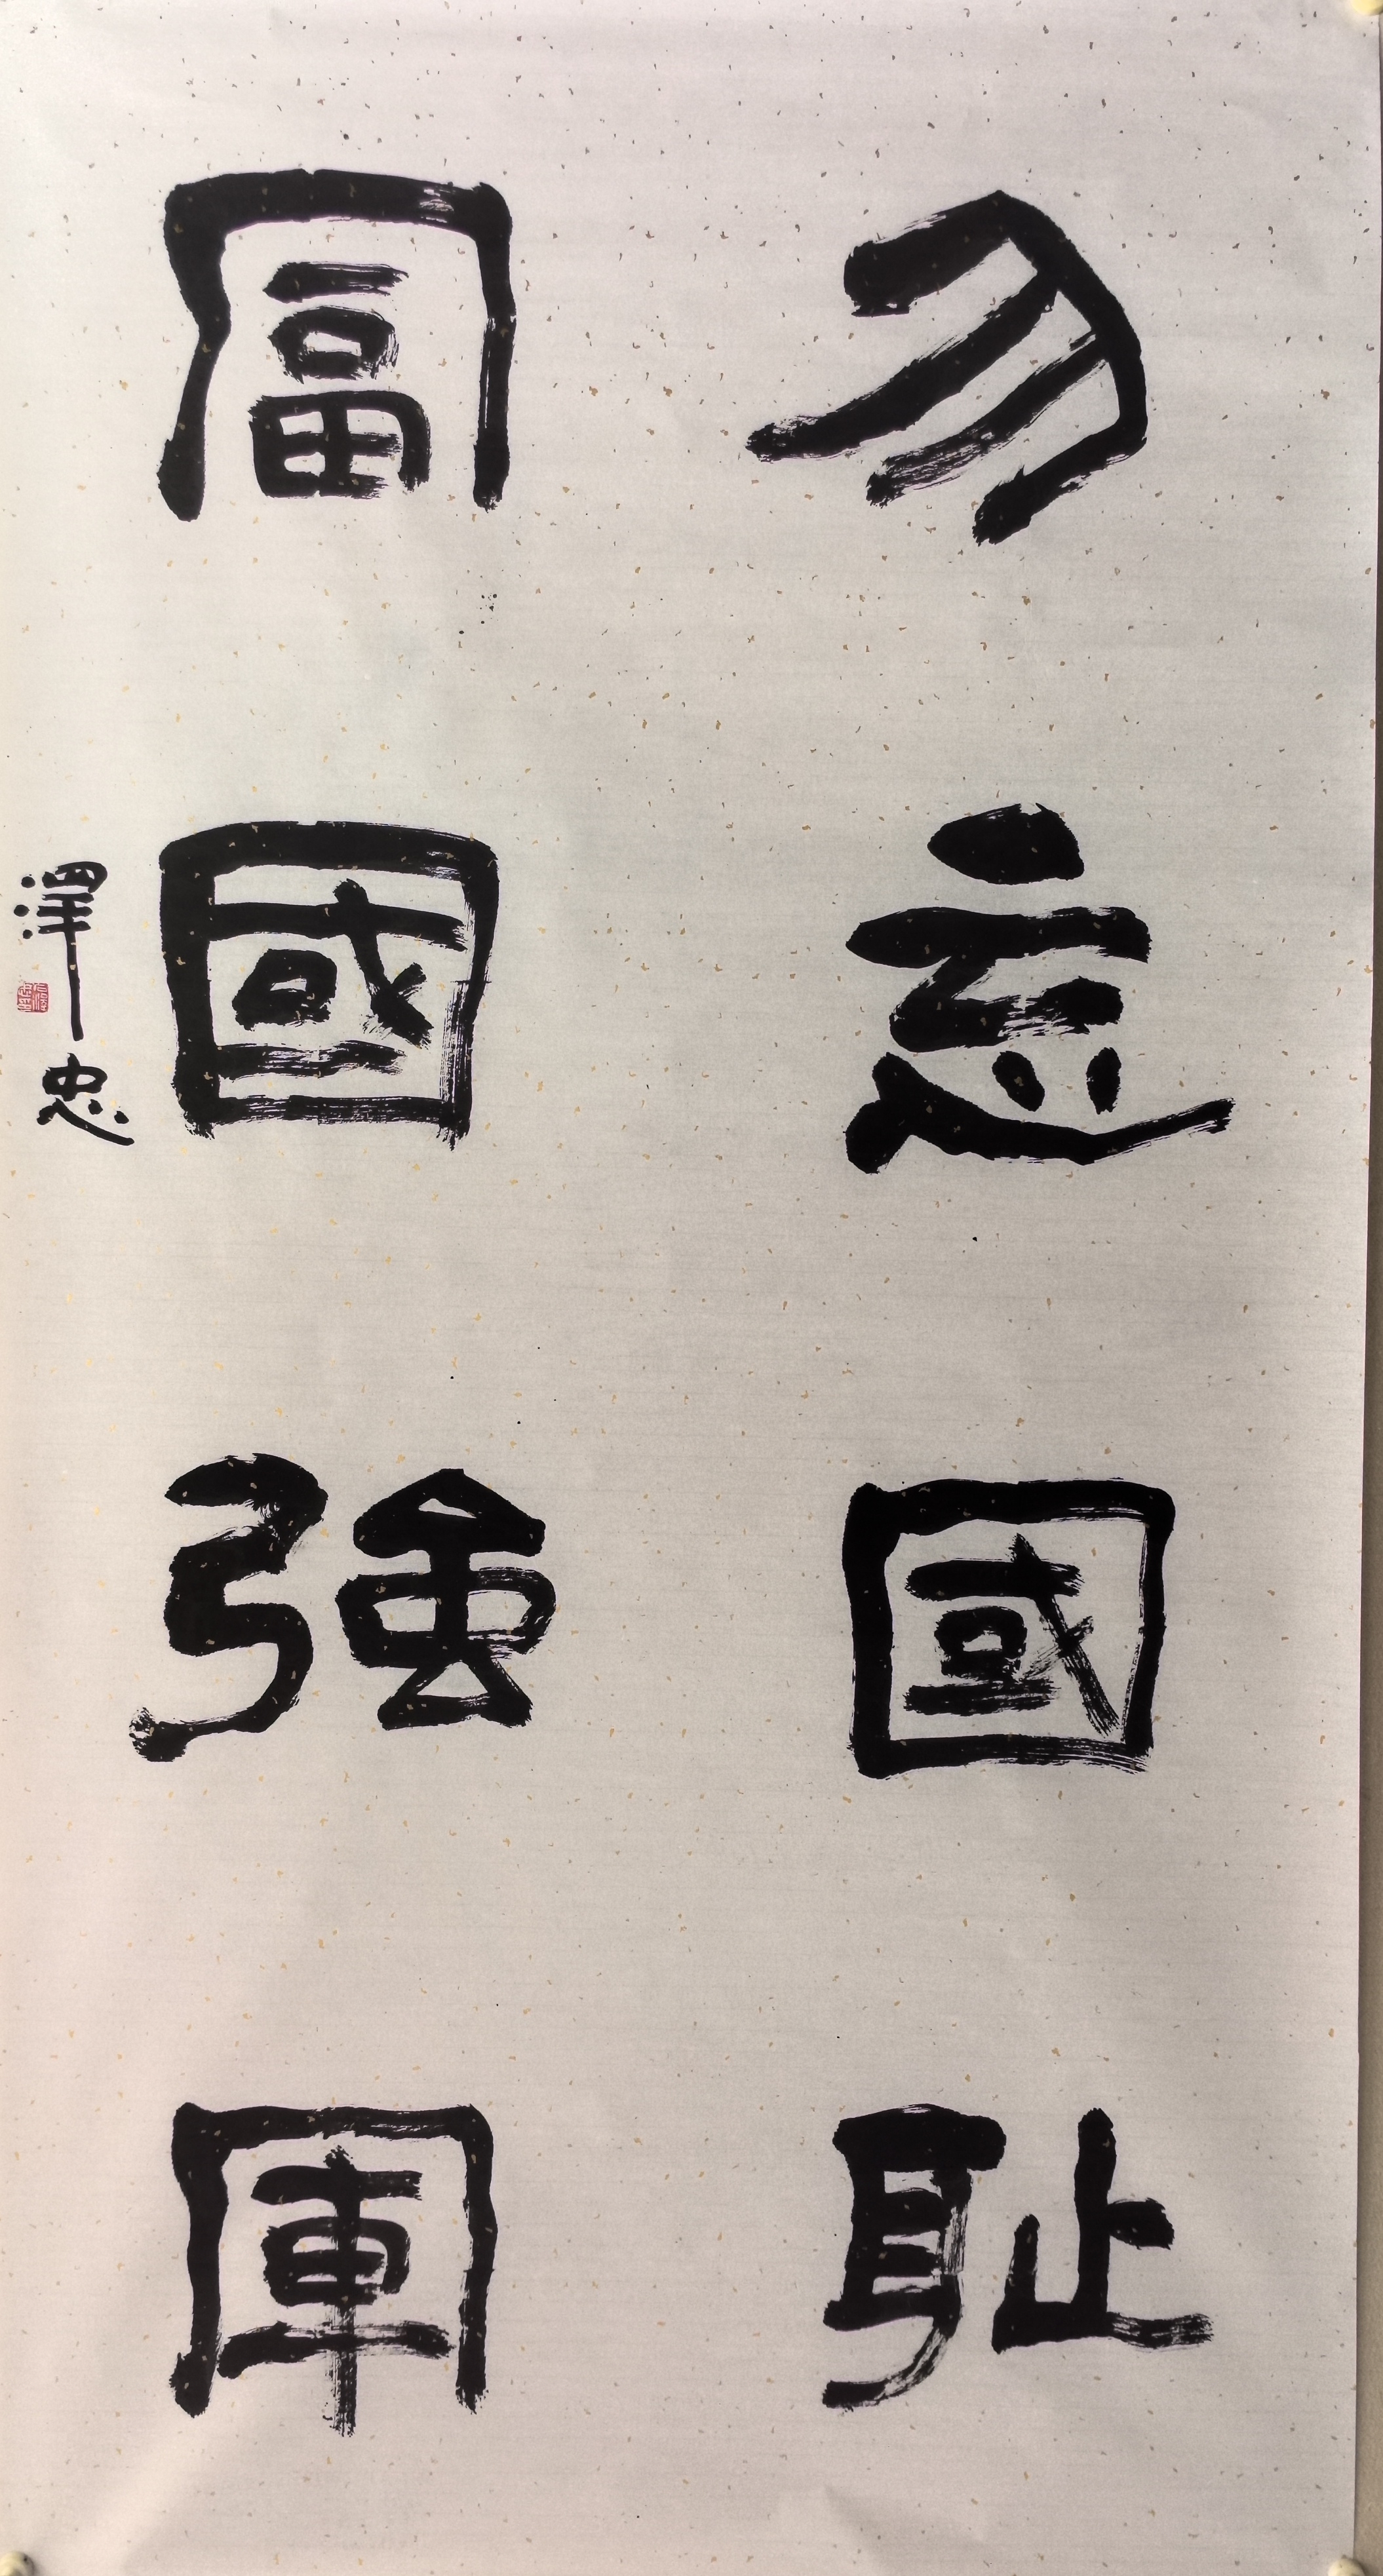 勿忘國耻
冨國強軍
澤忠